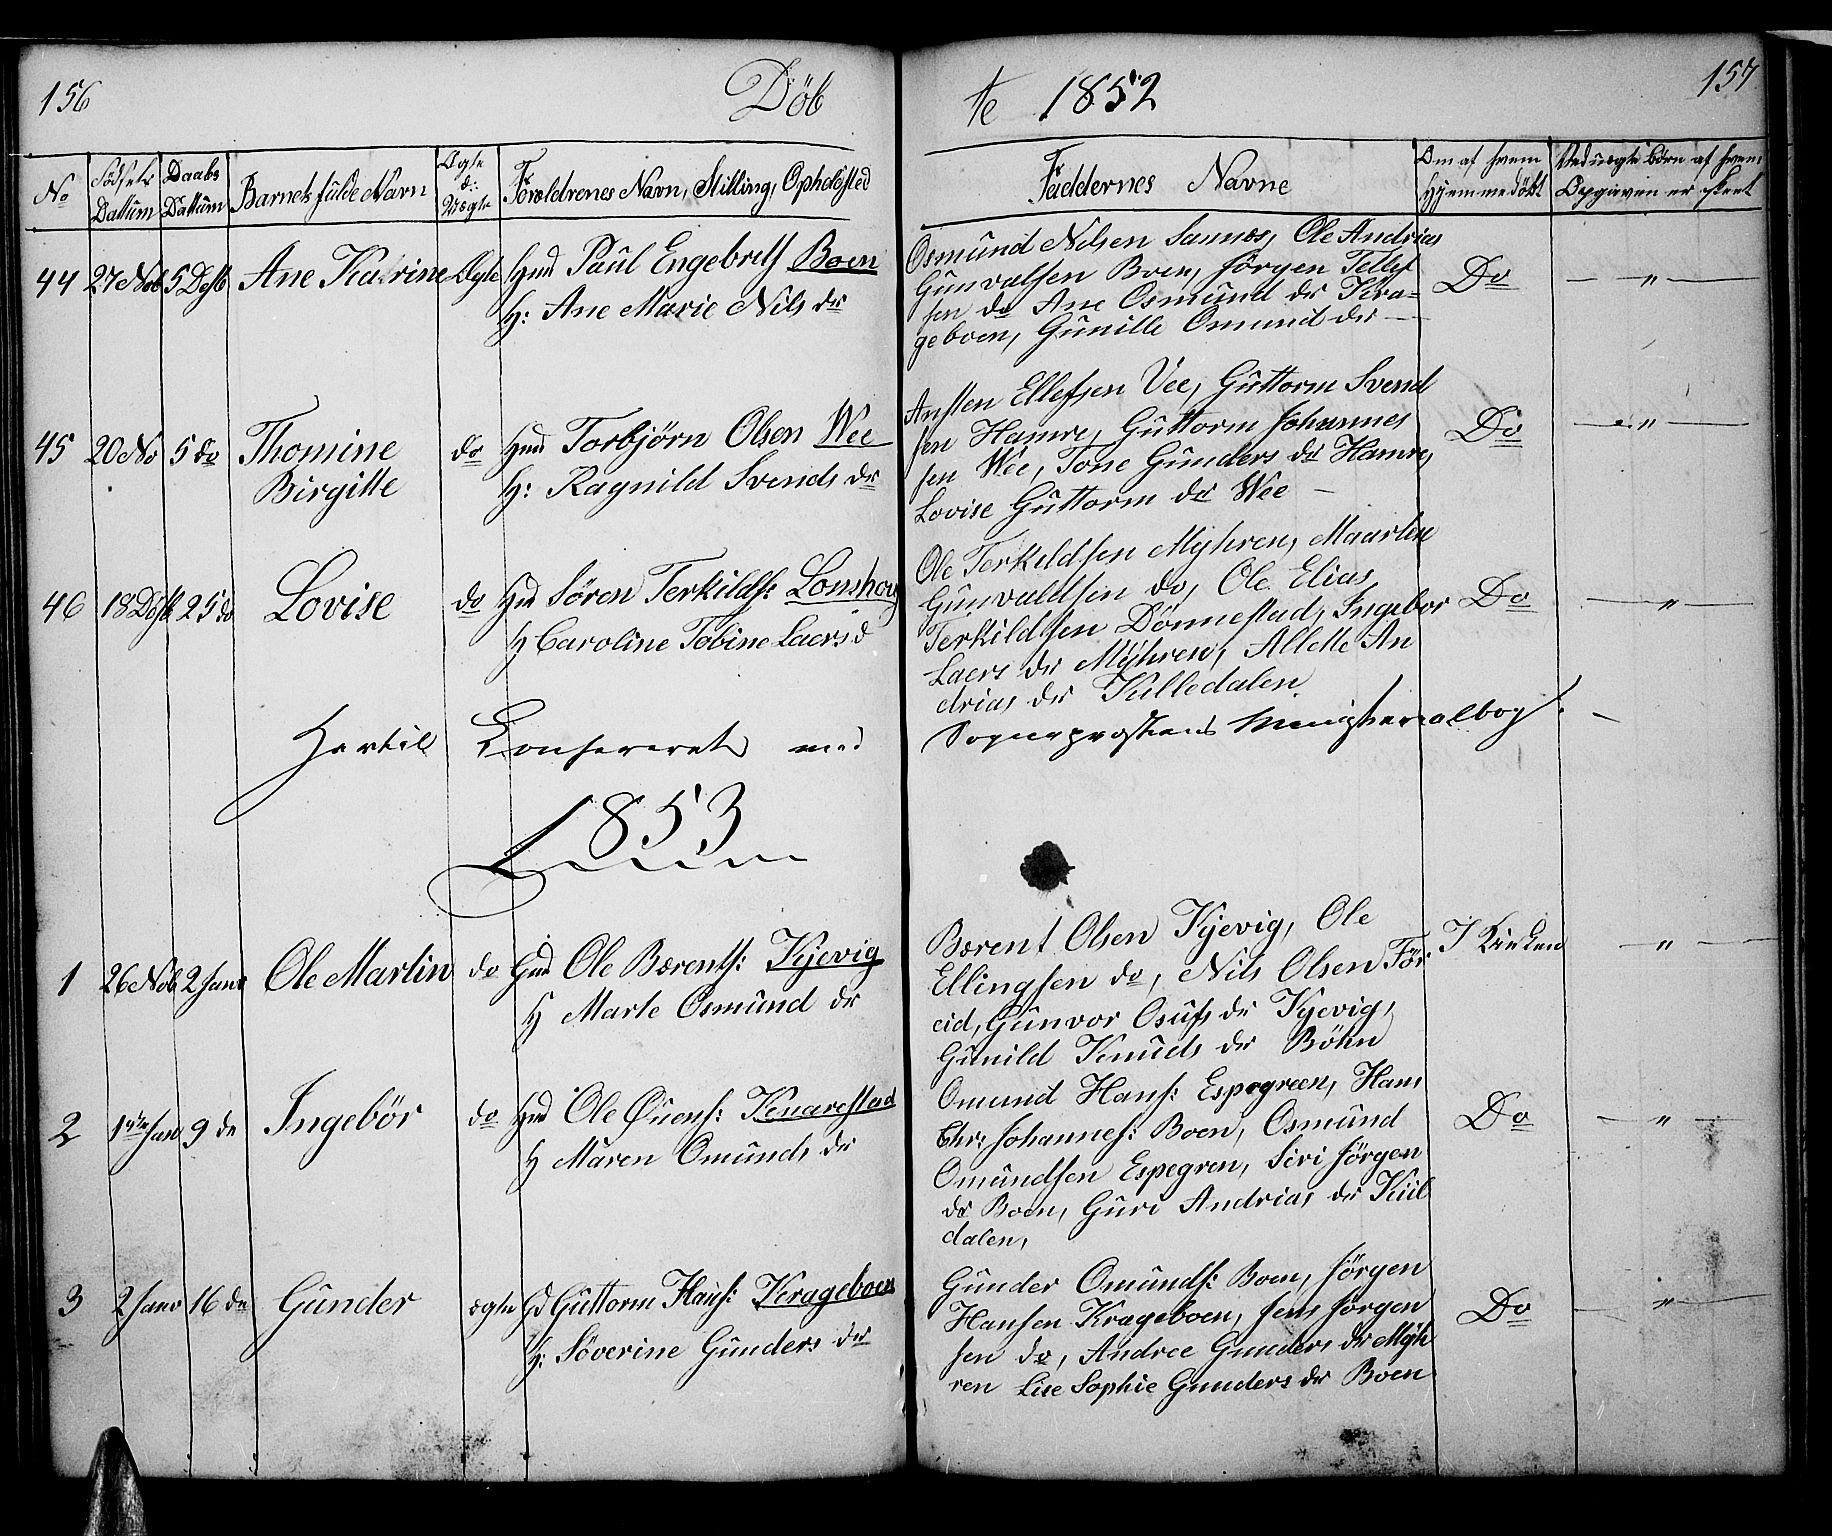 156
Döb
te 1852
157
No
Födsels Dattum
Daabs Dattum
Barnets fulde Navn
Ægte el: Uægte
Forældrenes Navn, Stilling, Opholdsted
Faddernes Navne
Om af hvem Hjemmedöbt
Ved uægte börn af hvem Opgiven er skeet
44 27 Nob 5 Desb Ane Katrine Ægte Hmd Paul Engebrets Boen
H: Ane Marie Nils dr
Osmund Nilsen Sannes, Ole Andrias
Gunvalsen Boen, Jörgen Tellef
sen do Ane Osmund dr Kra-
geboen, Gunille Omund dr —
Do
— " —
45 20 No 5 do Thomine
Birgitte
do Hmd Torbjörn Olsen Wee
H: Ragnild Svends dr
Ansten Ellefsen Vee, Guttorm Svend
sen Hamre, Guttorm Johannes
sen Wee, Tone Gunders dr Hamre,
Lovise Guttorm dr Wee —
Do
— " —
46 18 Desb 25 do Lovise do Hm Sören Terkilds: Lonshoug
H Caroline Tobine Laers d
Ole Terkildsen Myhren, Maarten
Gunvaldsen do, Ole Elias
Terkildsen Dönnestad, Ingebor
Laers dr Myhren, Allette An
drias dr Kulledalen.
Do
— " —
Hertil Konfereret med Sogneprestens Ministerialbog. —
1853
1 26 Nob 2 Janr Ole Martin do Hmd Ole Bærents: Kjevig
H Marte Osmund dr
Bærent Olsen Kjevig, Ole
Ellingsen do, Nils Olsen För
eid, Gunvor Osufs dr Kjevig,
Gunild Knuds dr Böhn
I Kirken
— " —
2 1ste Janr 9 do Ingebör do Hmd Ole Öuens: Knarestad
H Maren Omunds dr
Omund Hans: Espegreen, Hans
Chr: Johannes: Boen, Osmund
Omundsen Espegren, Siri Jörgen
dr Boen, Guri Andrias dr Kul
dalen,
Do
— " —
3 2 Janr 16 do Gunder ægte Gd Guttorm Hans: Krageboen
H: Söverine Gunders dr
Gunder Omunds: Boen, Jörgen
Hansen Krageboen, Jens Jörgen
sen do, Andree Gunders dr Myh
ren Lise Sophie Gunders dr Boen
Do
— " —